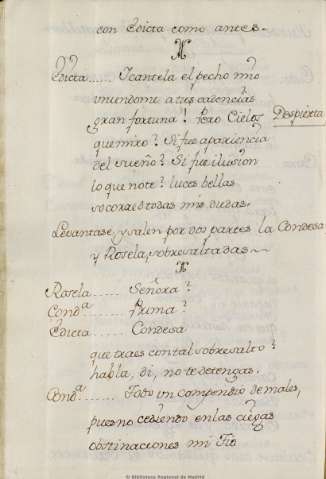 con Edicta como antes.
Edicta..... Y cantela el pecho mio
uniendome a tus cadencias
gran fortuna! Pero Cielos Despierta
que miro? Si fue apariencia
del sueño? Si fue ilusion
lo que note? luces bellas
socorred todas mis dudas.
Levantase, y salen por dos partes la Condesa
y Rosela, sobresaltadas
Rosela...... Señora?
Condª........ Prima?
Edicta....... Condesa
que traes con tal sobresalto?
habla, di, no te detengas.
Condª..... Todo un compendio de males,
pues no cediendo en las ciegas
obstinaciones mi Tio
© Biblioteca Nacional de España